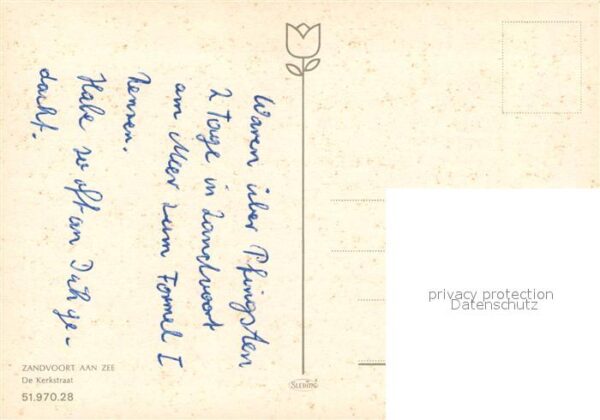 Waren über Pfingsten
2 Tage in Zandvoort
am Meer zum Formel I
Rennen.
Habe so oft an Dich ge-
dacht.
ZANDVOORT AAN ZEE
De Kerkstraat
51.970.28
privacy protection
Datenschutz